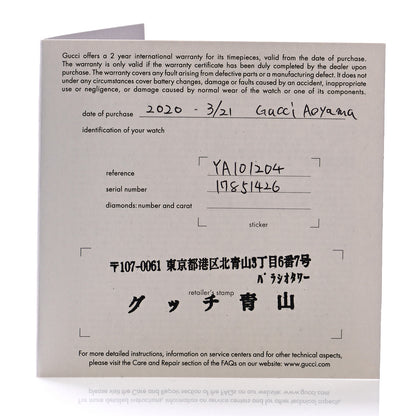 Gucci offers a 2 year international warranty for its timepieces, valid from the date of purchase.
The warranty is only valid if the warranty certificate has been duly completed by the dealer upon
purchase. The warranty covers any fault arising from defective parts or a manufacturing defect. It does not
under any circumstances cover battery changes, damage or faults caused by an accident, inappropriate
use or negligence, or damage caused by normal wear of the watch or one of its components.
date of purchase 2020 - 3/21 Gucci Aoyama
identification of your watch
reference YA101204
serial number 17851426
diamonds: number and carat
sticker
〒107-0061 東京都港区北青山3丁目6番7号
パラシオタワー
retailer's stamp
グッチ青山
For more detailed instructions, information on service centers and for other technical aspects,
please visit the Care and Repair section of the FAQs on our website: www.gucci.com